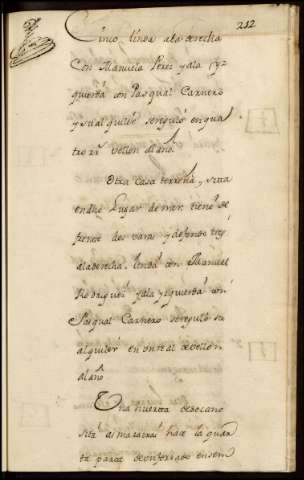 212
Cinco, linda ala derecha
Con Manuela Perez yala Yz
quierda con Pasqual Carnero
y su alquiler se regulò en qua
tro rr.^s vellon al año
Otra Casa terrena, y sitta
en dho Lugar de man tiene de
frente dos varas y de fondo tres
ala derecha, linda con Manuel
Rodriguez yala yzquierda con
Pasqual Carnero se regulò su
alquiler en un real de vellon
al año
Una huerta de secano
sita al hace la quar
ta parte de en sem